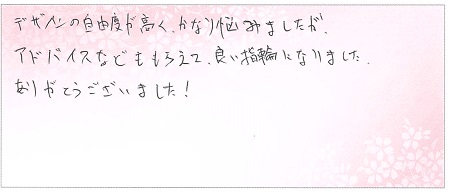 デザインの自由度が高く、かなり悩みましたが、
アドバイスなどももらえて、良い指輪になりました。
ありがとうございました!